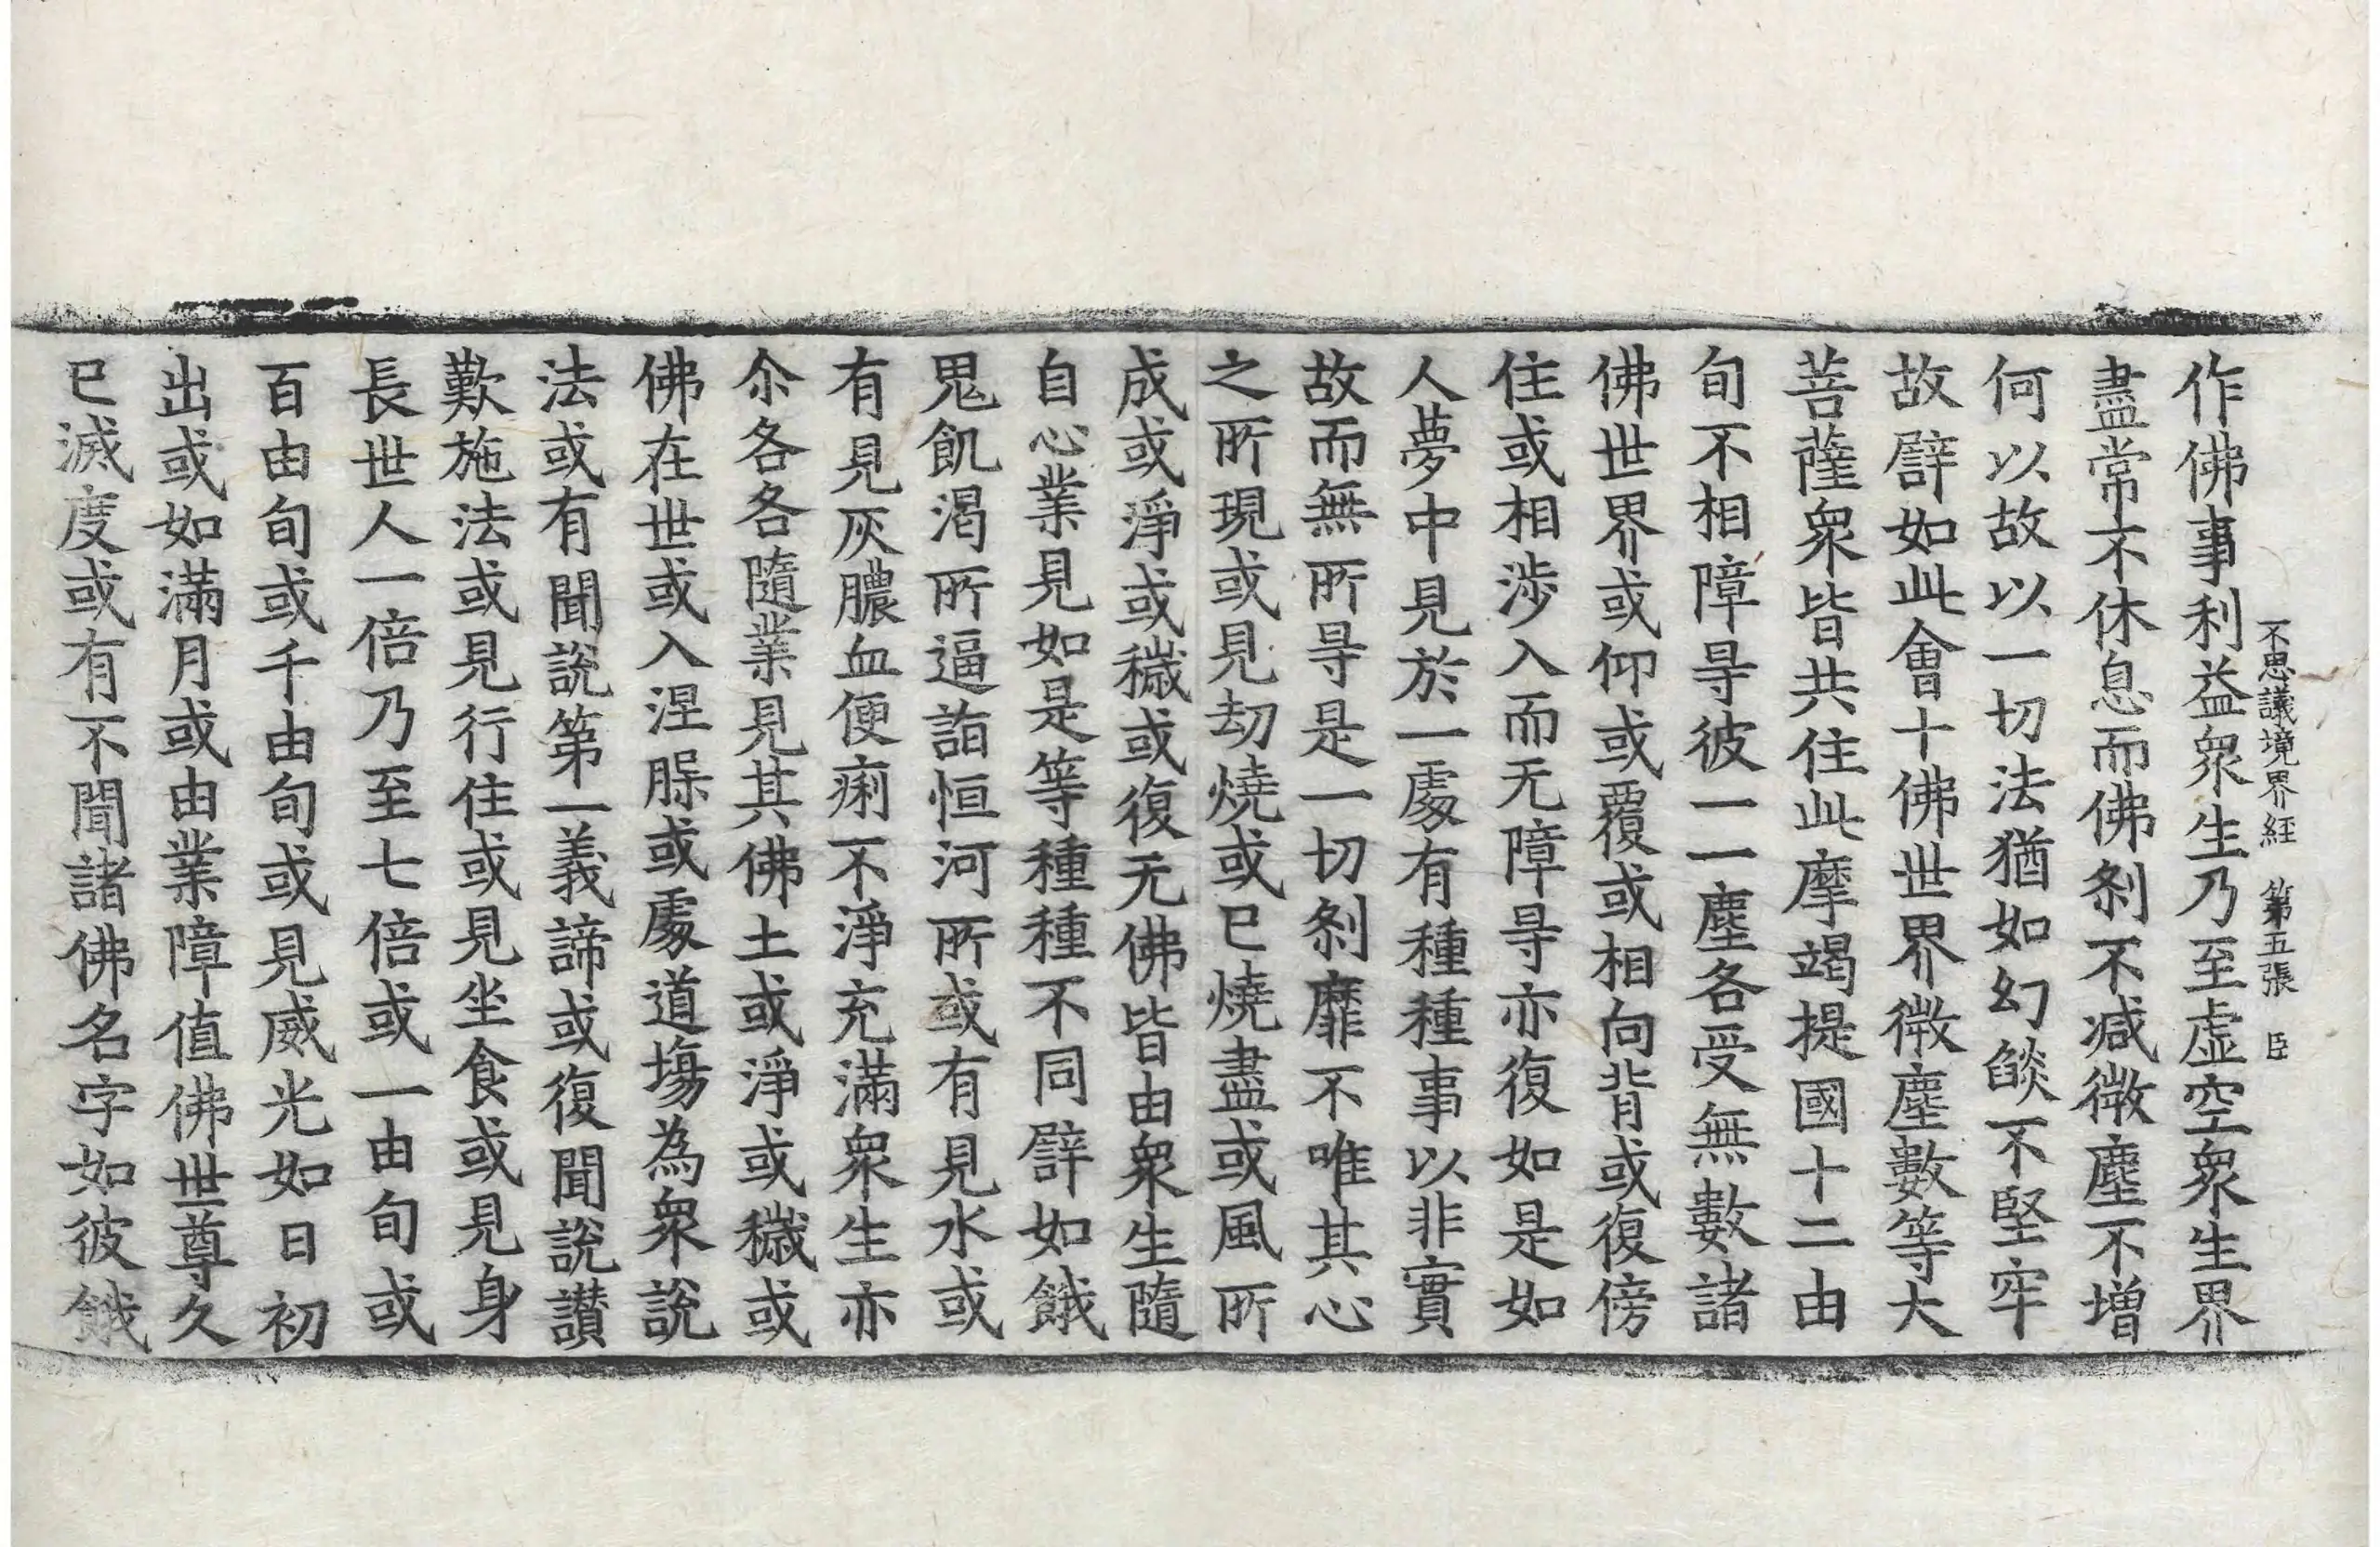 不思議境界経 第五張 臣
作佛事利益衆生乃至虛空衆生界
盡常不休息而佛剎不減微塵不增
何以故以一切法猶如幻燄不堅牢
故譬如此會十佛世界微塵數等大
菩薩衆皆共住此摩竭提國十二由
旬不相障㝵彼一一塵各受無數諸
佛世界或仰或覆或相向背或復傍
住或相涉入而无障㝵亦復如是如
人夢中見於一處有種種事以非實
故而無所㝵是一切剎靡不唯其心
之所現或見劫燒或已燒盡或風所
成或淨或穢或復无佛皆由衆生隨
自心業見如是等種種不同譬如餓
鬼飢渴所逼詣恒河所或有見水或
有見灰膿血便痢不淨充滿衆生亦
尒各各隨業見其佛土或淨或穢或
佛在世或入涅脲或處道場為衆說
法或有聞說第一義諦或復聞說讃
歎施法或見行住或見坐食或見身
長世人一倍乃至七倍或一由旬或
百由旬或千由旬或見威光如日初
出或如滿月或由業障值佛世尊久
已滅度或有不聞諸佛名字如彼餓